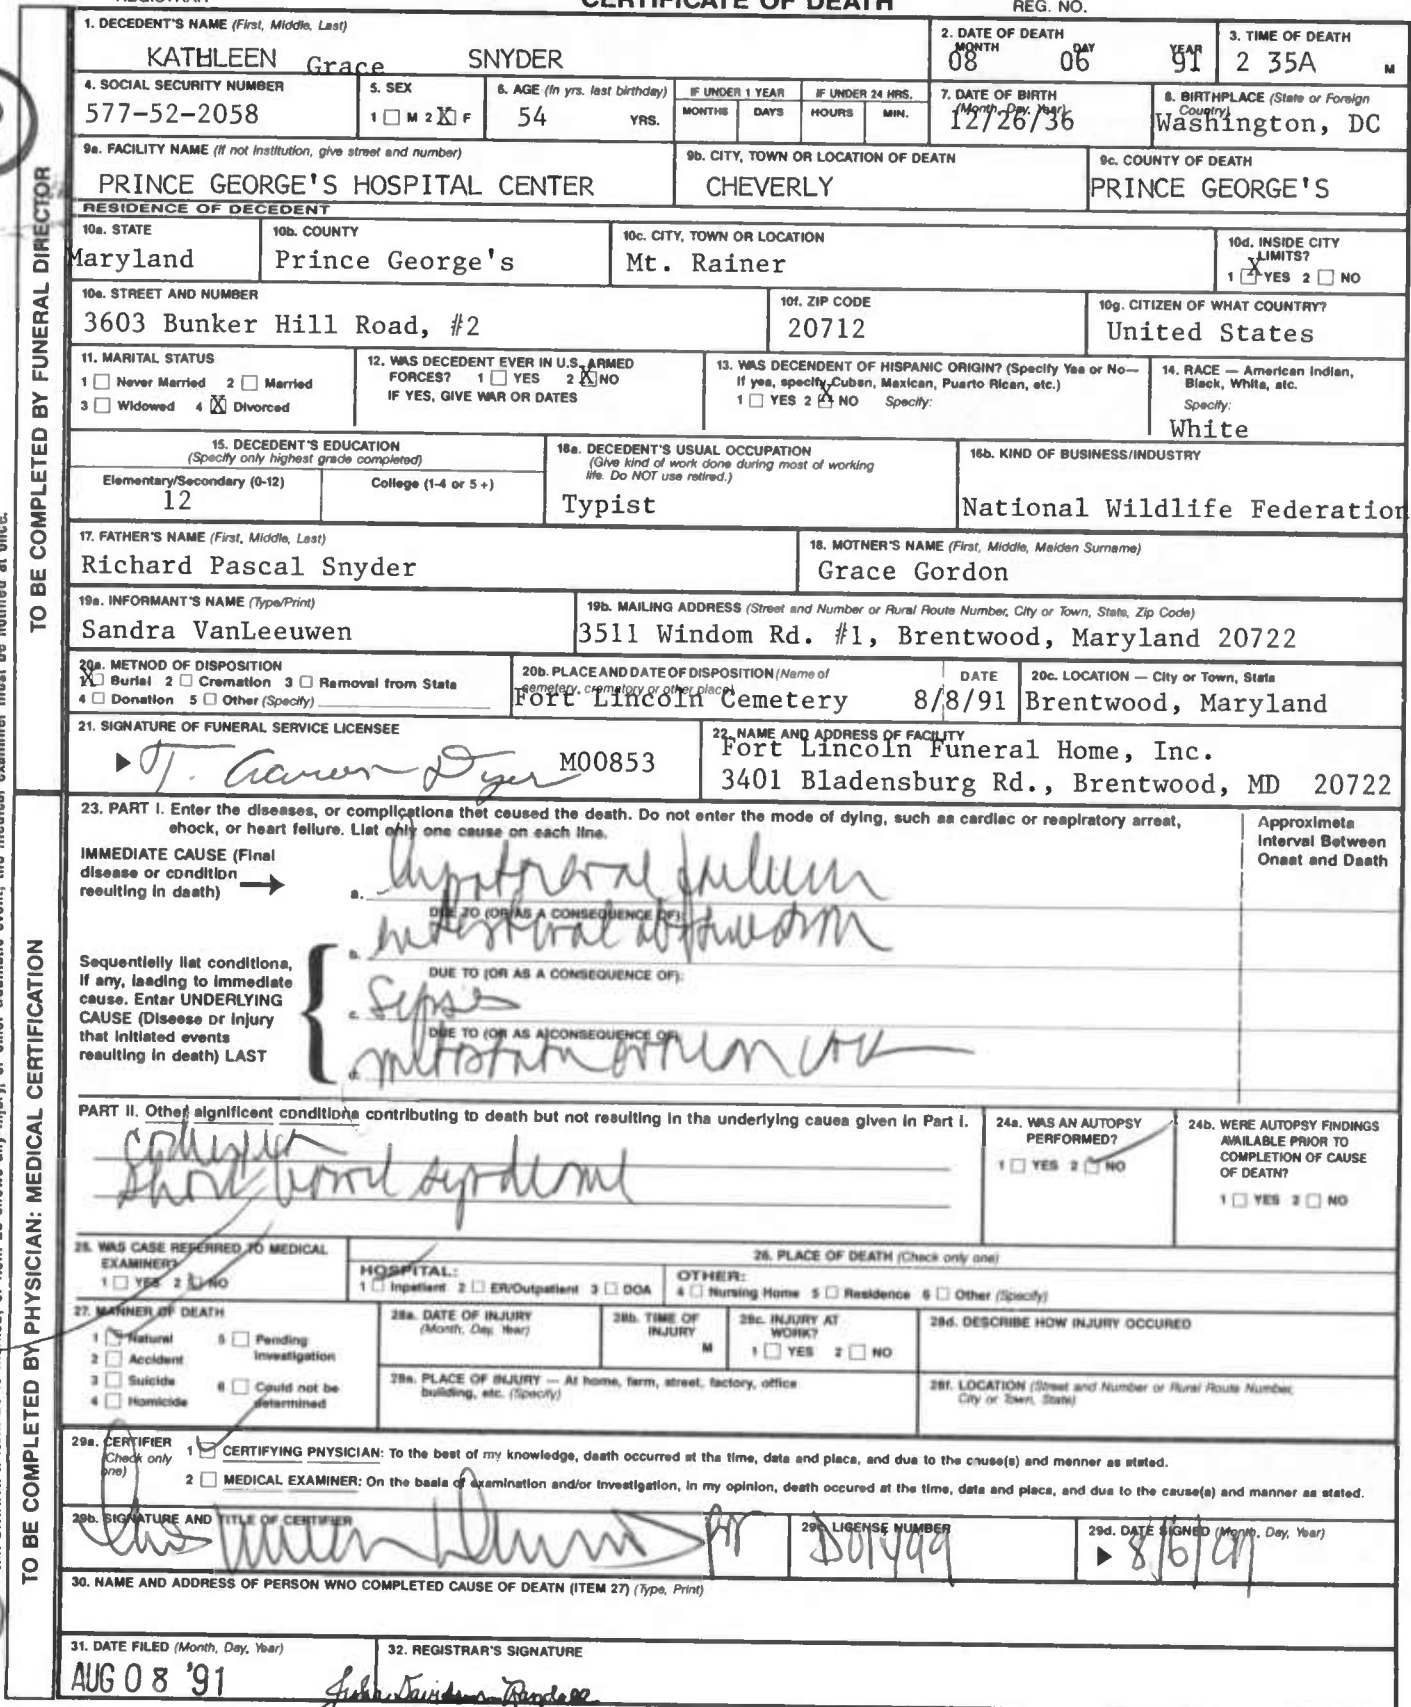 CERTIFICATE OF DEATH
REG. NO.
1. DECEDENT'S NAME (First, Middle, Last)
KATHLEEN Grace SNYDER
2. DATE OF DEATH
MONTH DAY YEAR
08 06 91
3. TIME OF DEATH
2 35A M
4. SOCIAL SECURITY NUMBER
577-52-2058
5. SEX
1 M 2 X F
6. AGE (In yrs. last birthday)
54 YRS.
IF UNDER 1 YEAR
MONTHS DAYS
IF UNDER 24 HRS.
HOURS MIN.
7. DATE OF BIRTH
(Month, Day, Year)
12/26/36
8. BIRTHPLACE (State or Foreign Country)
Washington, DC
9a. FACILITY NAME (If not institution, give street and number)
PRINCE GEORGE'S HOSPITAL CENTER
9b. CITY, TOWN OR LOCATION OF DEATH
CHEVERLY
9c. COUNTY OF DEATH
PRINCE GEORGE'S
RESIDENCE OF DECEDENT
10a. STATE
Maryland
10b. COUNTY
Prince George's
10c. CITY, TOWN OR LOCATION
Mt. Rainer
10d. INSIDE CITY LIMITS?
1 X YES 2 NO
10e. STREET AND NUMBER
3603 Bunker Hill Road, #2
10f. ZIP CODE
20712
10g. CITIZEN OF WHAT COUNTRY?
United States
11. MARITAL STATUS
1 Never Married 2 Married
3 Widowed 4 X Divorced
12. WAS DECEDENT EVER IN U.S. ARMED
FORCES? 1 YES 2 X NO
IF YES, GIVE WAR OR DATES
13. WAS DECENDENT OF HISPANIC ORIGIN? (Specify Yes or No—
If yes, specify Cuban, Mexican, Puerto Rican, etc.)
1 YES 2 X NO Specify:
14. RACE — American Indian,
Black, White, etc.
Specify:
White
15. DECEDENT'S EDUCATION
(Specify only highest grade completed)
Elementary/Secondary (0-12) College (1-4 or 5 +)
12
16a. DECEDENT'S USUAL OCCUPATION
(Give kind of work done during most of working
life. Do NOT use retired.)
Typist
16b. KIND OF BUSINESS/INDUSTRY
National Wildlife Federation
17. FATHER'S NAME (First, Middle, Last)
Richard Pascal Snyder
18. MOTHER'S NAME (First, Middle, Maiden Surname)
Grace Gordon
19a. INFORMANT'S NAME (Type/Print)
Sandra VanLeeuwen
19b. MAILING ADDRESS (Street and Number or Rural Route Number, City or Town, State, Zip Code)
3511 Windom Rd. #1, Brentwood, Maryland 20722
20a. METHOD OF DISPOSITION
1 X Burial 2 Cremation 3 Removal from State
4 Donation 5 Other (Specify)
20b. PLACE AND DATE OF DISPOSITION (Name of
cemetery, crematory or other place) DATE
Fort Lincoln Cemetery 8/8/91
20c. LOCATION — City or Town, State
Brentwood, Maryland
21. SIGNATURE OF FUNERAL SERVICE LICENSEE
Dyer M00853
22. NAME AND ADDRESS OF FACILITY
Fort Lincoln Funeral Home, Inc.
3401 Bladensburg Rd., Brentwood, MD 20722
TO BE COMPLETED BY FUNERAL DIRECTOR
23. PART I. Enter the diseases, or complications that caused the death. Do not enter the mode of dying, such as cardiac or respiratory arrest,
shock, or heart failure. List only one cause on each line.
Approximate
Interval Between
Onset and Death
IMMEDIATE CAUSE (Final
disease or condition
resulting in death)
a. hepatorenal failure
DUE TO (OR AS A CONSEQUENCE OF):
b. intestinal obstruction
DUE TO (OR AS A CONSEQUENCE OF):
c. Sepsis
DUE TO (OR AS A CONSEQUENCE OF):
d. metastatic ovarian
Sequentially list conditions,
if any, leading to immediate
cause. Enter UNDERLYING
CAUSE (Disease or injury
that initiated events
resulting in death) LAST
PART II. Other significant conditions contributing to death but not resulting in the underlying cause given in Part I.
short bowel syndrome
24a. WAS AN AUTOPSY
PERFORMED?
1 YES 2 NO
24b. WERE AUTOPSY FINDINGS
AVAILABLE PRIOR TO
COMPLETION OF CAUSE
OF DEATH?
1 YES 2 NO
25. WAS CASE REFERRED TO MEDICAL
EXAMINER?
1 YES 2 NO
26. PLACE OF DEATH (Check only one)
HOSPITAL:
1 Inpatient 2 ER/Outpatient 3 DOA
OTHER:
4 Nursing Home 5 Residence 6 Other (Specify)
27. MANNER OF DEATH
1 Natural 5 Pending Investigation
2 Accident
3 Suicide 6 Could not be determined
4 Homicide
28a. DATE OF INJURY
(Month, Day, Year)
28b. TIME OF INJURY
M
28c. INJURY AT WORK?
1 YES 2 NO
28d. DESCRIBE HOW INJURY OCCURED
28e. PLACE OF INJURY — At home, farm, street, factory, office
building, etc. (Specify)
28f. LOCATION (Street and Number or Rural Route Number,
City or Town, State)
29a. CERTIFIER
(Check only one)
1 CERTIFYING PHYSICIAN: To the best of my knowledge, death occurred at the time, date and place, and due to the cause(s) and manner as stated.
2 MEDICAL EXAMINER: On the basis of examination and/or investigation, in my opinion, death occured at the time, data and place, and due to the cause(s) and manner as stated.
29b. SIGNATURE AND TITLE OF CERTIFIER
29c. LICENSE NUMBER
29d. DATE SIGNED (Month, Day, Year)
8/6/91
30. NAME AND ADDRESS OF PERSON WHO COMPLETED CAUSE OF DEATH (ITEM 27) (Type, Print)
31. DATE FILED (Month, Day, Year)
AUG 08 '91
32. REGISTRAR'S SIGNATURE
TO BE COMPLETED BY PHYSICIAN: MEDICAL CERTIFICATION